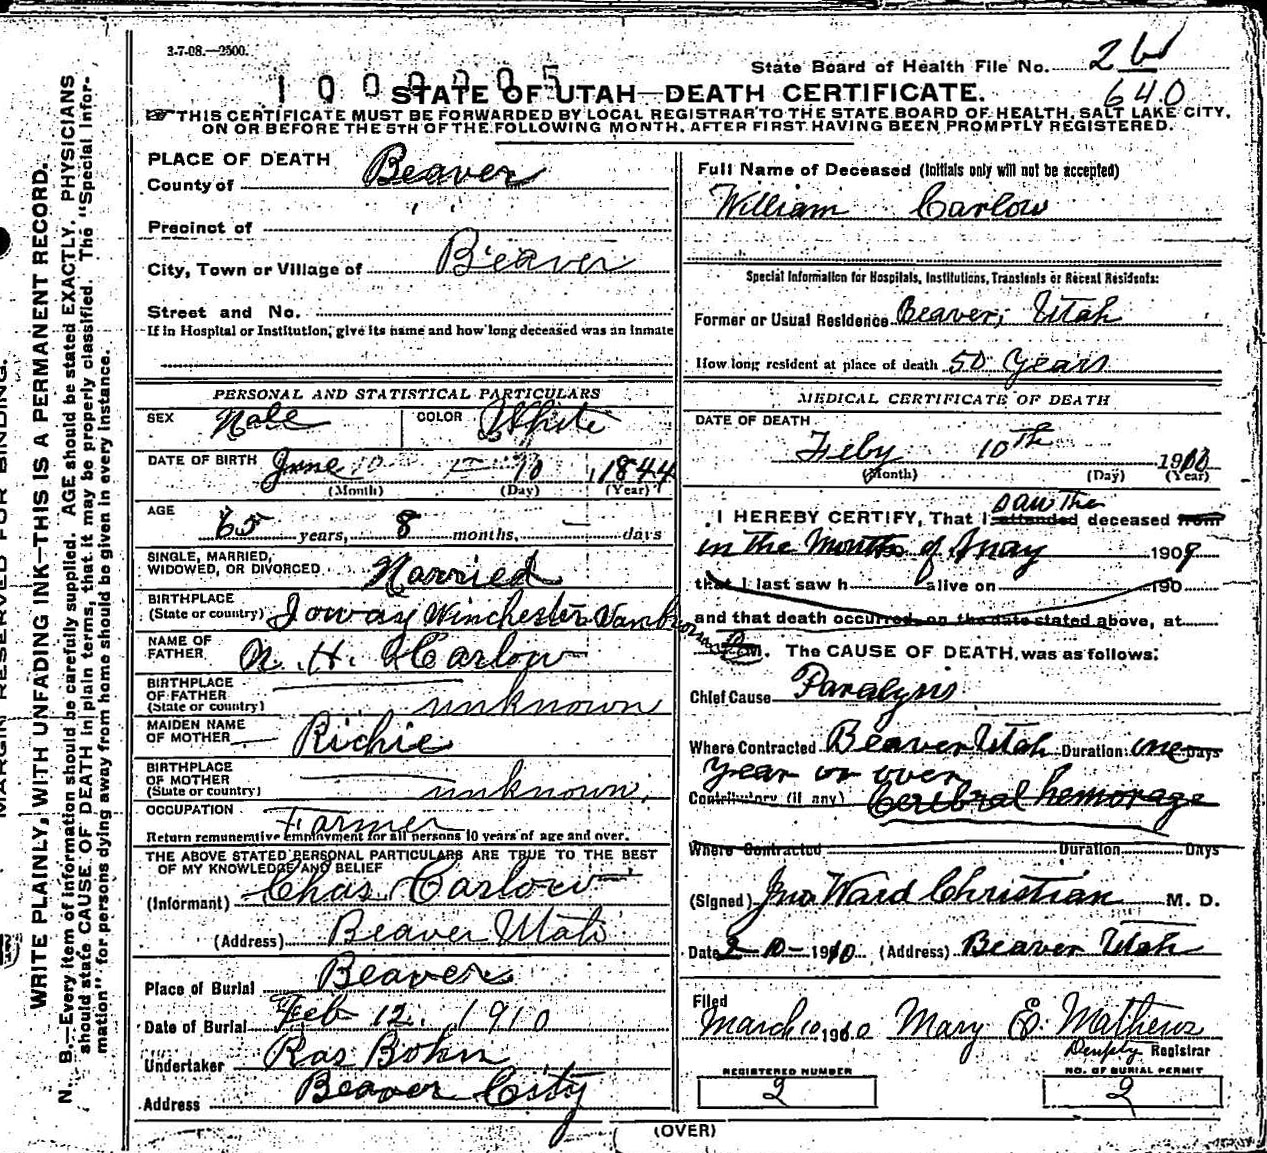 3-7-08.—2500.
1000205
State Board of Health File No. 26
640
STATE OF UTAH—DEATH CERTIFICATE.
THIS CERTIFICATE MUST BE FORWARDED BY LOCAL REGISTRAR TO THE STATE BOARD OF HEALTH, SALT LAKE CITY,
ON OR BEFORE THE 5TH OF THE FOLLOWING MONTH, AFTER FIRST HAVING BEEN PROMPTLY REGISTERED.
MARGIN RESERVED FOR BINDING.
WRITE PLAINLY, WITH UNFADING INK—THIS IS A PERMANENT RECORD.
N. B.—Every item of information should be carefully supplied. AGE should be stated EXACTLY. PHYSICIANS
should state CAUSE OF DEATH in plain terms, that it may be properly classified. The "Special Infor-
mation" for persons dying away from home should be given in every instance.
PLACE OF DEATH
County of Beaver
Precinct of
City, Town or Village of Beaver
Street and No.
If in Hospital or Institution, give its name and how long deceased was an inmate
PERSONAL AND STATISTICAL PARTICULARS
SEX Male COLOR White
DATE OF BIRTH June 10 10 1844
(Month) (Day) (Year)
AGE 65 years, 8 months, — days
SINGLE, MARRIED,
WIDOWED, OR DIVORCED Married
BIRTHPLACE
(State or country) Ioway Winchester
NAME OF
FATHER H. Carlow
BIRTHPLACE
OF FATHER
(State or country) unknown
MAIDEN NAME
OF MOTHER Richie
BIRTHPLACE
OF MOTHER
(State or country) unknown
OCCUPATION Farmer
Return remunerative employment for all persons 10 years of age and over.
THE ABOVE STATED PERSONAL PARTICULARS ARE TRUE TO THE BEST
OF MY KNOWLEDGE AND BELIEF
(Informant) Chas. Carlow
(Address) Beaver Utah
Place of Burial Beaver
Date of Burial Feb 12, 1910
Undertaker Ras Bohn
Address Beaver City
Full Name of Deceased (Initials only will not be accepted)
William Carlow
Special Information for Hospitals, Institutions, Transients or Recent Residents:
Former or Usual Residence Beaver, Utah
How long resident at place of death 50 Years
MEDICAL CERTIFICATE OF DEATH
DATE OF DEATH
Feby 10th 1910
(Month) (Day) (Year)
saw the
I HEREBY CERTIFY, That I attended deceased from
in the Months of May 1909
that I last saw h alive on 190
and that death occurred, on the date stated above, at
M. The CAUSE OF DEATH was as follows:
Chief Cause Paralysis
Where Contracted Beaver Utah Duration one Days
year or over
Contributory (if any) Cerebral hemorage
Where Contracted Duration Days
(Signed) Jno Ward Christian M. D.
Date 2-10-1910 (Address) Beaver Utah
Filed
March 10 1910 Mary E. Mathews
Deupty Registrar
REGISTERED NUMBER
2
NO. OF BURIAL PERMIT
2
(OVER)